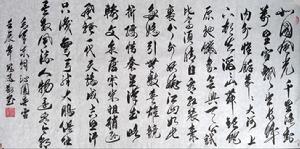 北國風光千里冰封
萬里雪飄望長城
內外惟餘莽莽大河上
下頓失滔滔山舞銀蛇
原馳蠟象欲與天公試
比高須晴日看紅裝素
裹分外妖嬈江山如此
多嬌引無數英雄競
折腰惜秦皇漢武略輸
文采唐宗宋祖稍遜風
騷一代天驕成吉思汗
只識彎弓射大雕俱往
矣數風流人物還看今朝
毛澤東詞沁園春雪